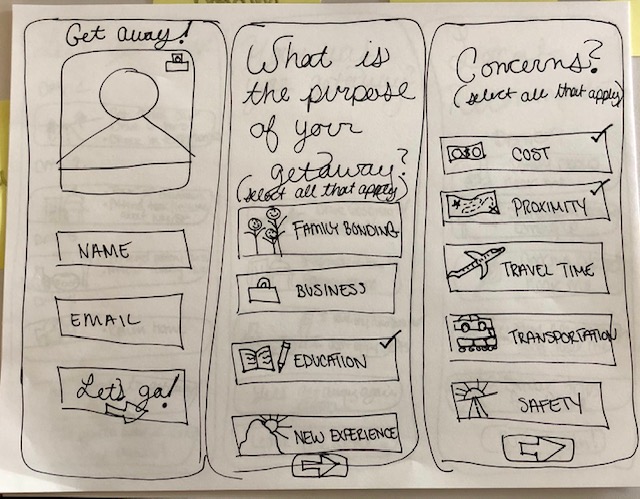 Get away!
NAME
EMAIL
Let's go!
What is
the purpose
of your
getaway?
(select all that apply)
FAMILY BONDING
BUSINESS
EDUCATION
NEW EXPERIENCE
Concerns?
(select all that apply)
COST
PROXIMITY
TRAVEL TIME
TRANSPORTATION
SAFETY